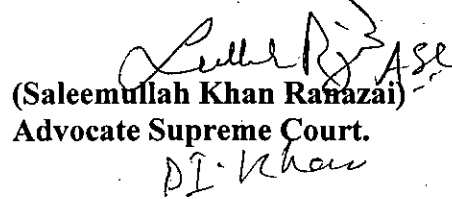 ASC
(Saleemullah Khan Ranazai)
Advocate Supreme Court.
D I. Khan